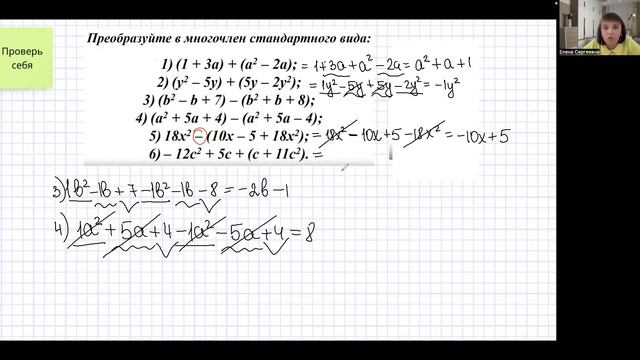 Преобразуйте в многочлен стандартного вида:
Проверь
себя
1) (1 + 3a) + (a² – 2a); = 1+3a+a²-2a = a²+a+1
2) (y² – 5y) + (5y – 2y²); = 1y²-5y+5y-2y² = -1y²
3) (b² – b + 7) – (b² + b + 8);
4) (a² + 5a + 4) – (a² + 5a – 4);
5) 18x² – (10x – 5 + 18x²); = 18x²-10x+5-18x² = -10x+5
6) – 12c² + 5c + (c + 11c²). =
3) 1b²-1b+7-1b²-1b-8 = -2b-1
4) 1a²+5a+4-1a²-5a+4 = 8
Елена Сергеевна